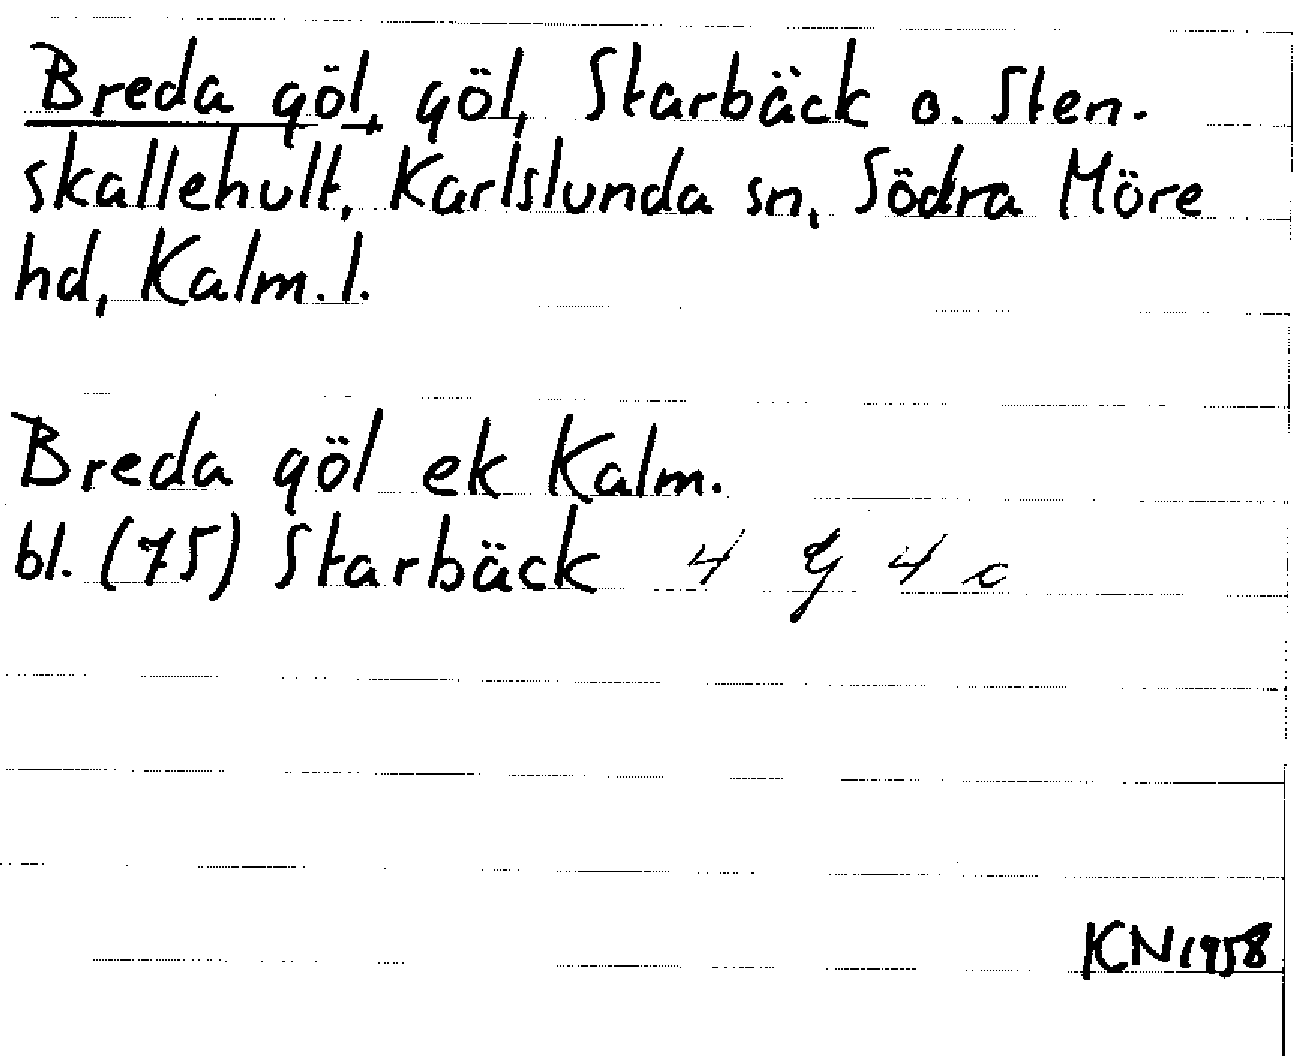 Breda göl, göl, Starbäck o. Sten-
skallehult, Karlslunda sn, Södra Möre
hd, Kalm. l.
Breda göl ek Kalm.
bl. (75) Starbäck 4 G 4 c
KN 1958